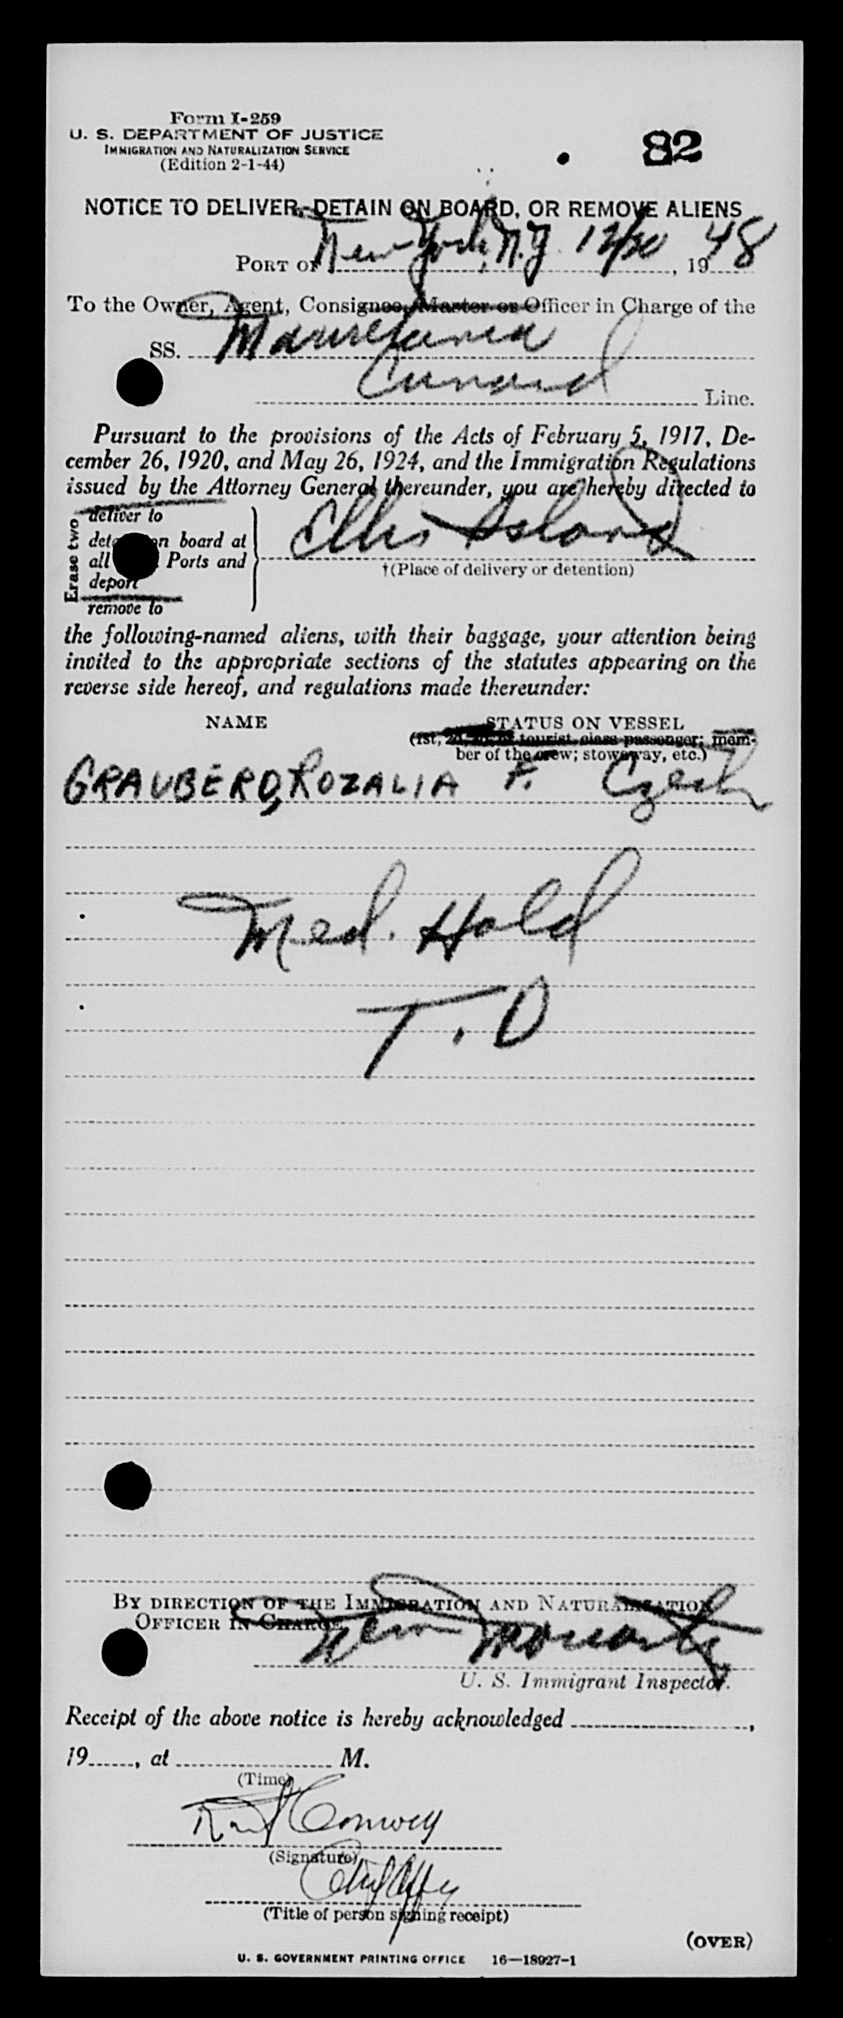 Form I-259
U. S. DEPARTMENT OF JUSTICE
IMMIGRATION AND NATURALIZATION SERVICE
(Edition 2-1-44)
82
NOTICE TO DELIVER, DETAIN ON BOARD, OR REMOVE ALIENS
PORT OF New York, N.Y. 12/20, 1948
To the Owner, Agent, Consignee, Master or Officer in Charge of the
SS. Mauretania
Cunard Line.
Pursuant to the provisions of the Acts of February 5, 1917, De-
cember 26, 1920, and May 26, 1924, and the Immigration Regulations
issued by the Attorney General thereunder, you are hereby directed to
Erase two
deliver to
detain on board at
all Ports and
deport
remove to
Ellis Island
†(Place of delivery or detention)
the following-named aliens, with their baggage, your attention being
invited to the appropriate sections of the statutes appearing on the
reverse side hereof, and regulations made thereunder:
NAME STATUS ON VESSEL
(1st, 2d, or tourist class passenger; mem-
ber of the crew; stowaway, etc.)
GRAUBERD, ROZALIA F. Czech
Med. Hold
T. D
BY DIRECTION OF THE IMMIGRATION AND NATURALIZATION
OFFICER IN CHARGE
Moriarty
U. S. Immigrant Inspector.
Receipt of the above notice is hereby acknowledged ,
19 , at M.
(Time)
Conway
(Signature)
(Title of person signing receipt)
(OVER)
U. S. GOVERNMENT PRINTING OFFICE 16—18927-1